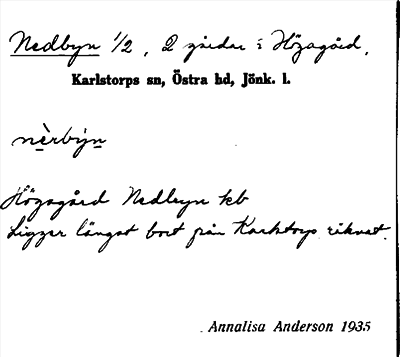 Nedbyn 1/2, 2 gårdar i Högagård.
Karlstorps sn, Östra hd, Jönk. l.
nèrbyn
Högagård Nedbyn kb
Ligger längst bort från Karlstorp räknat.
Annalisa Anderson 1935